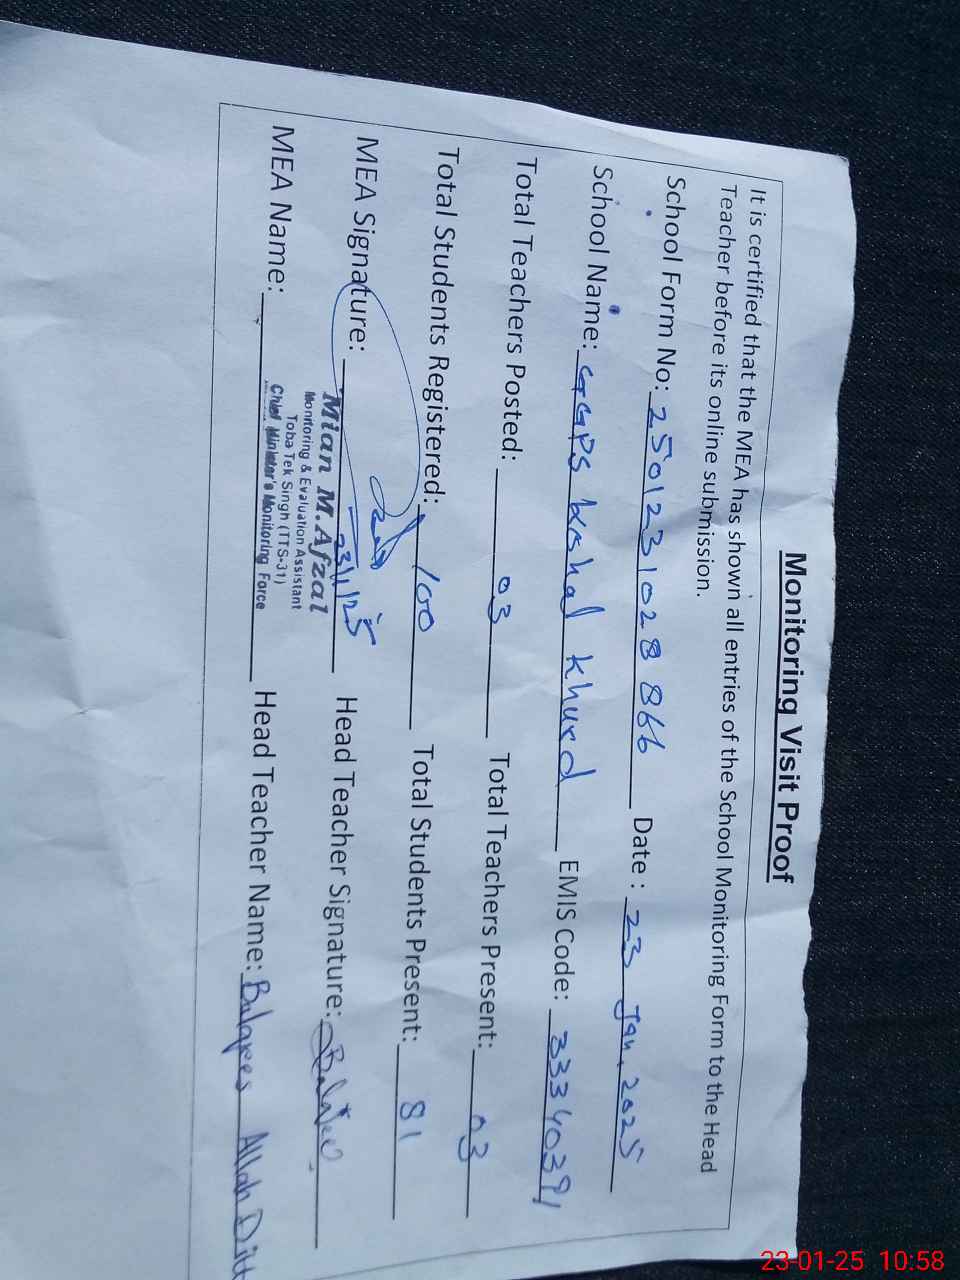 Monitoring Visit Proof
It is certified that the MEA has shown all entries of the School Monitoring Form to the Head
Teacher before its online submission.
School Form No: 2501231028866 Date : 23 Jan, 2025
School Name: GGPS kashal khurd EMIS Code: 33340391
Total Teachers Posted: 03 Total Teachers Present: 03
Total Students Registered: 100 Total Students Present: 81
MEA Signature: 23/1/25 Head Teacher Signature:
Mian M.Afzal
Monitoring & Evaluation Assistant
Toba Tek Singh (TTS-31)
Chief Minister's Monitoring Force
MEA Name: Head Teacher Name: Balqees Allah Ditt
23-01-25 10:58